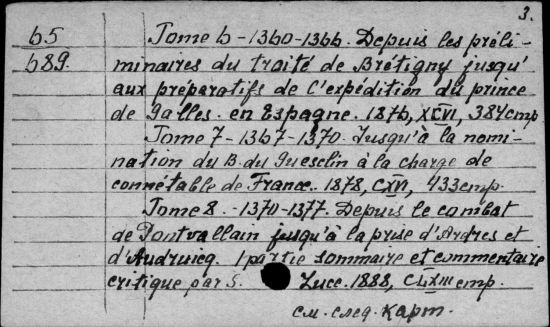 3.
65 Tome 6 - 1360-1366. Depuis les préli-
689. minaires du traité de Brétigny jusqu'
aux préparatifs de l'expédition du prince
de Galles en Espagne. 1876, XCVI, 384 стр
Tome 7 - 1367-1370. Jusqu'à la nomi-
nation du B. du Guesclin à la charge de
connétable de France. 1878, CXVI, 433 стр.
Tome 8. - 1370-1377. Depuis le combat
de Pontvallain jusqu'à la prise d'Ardres et
d'Audruicq. 1 partie sommaire et commentaire
critique par S. Luce. 1888, CLXIII стр.
см. след. карт.